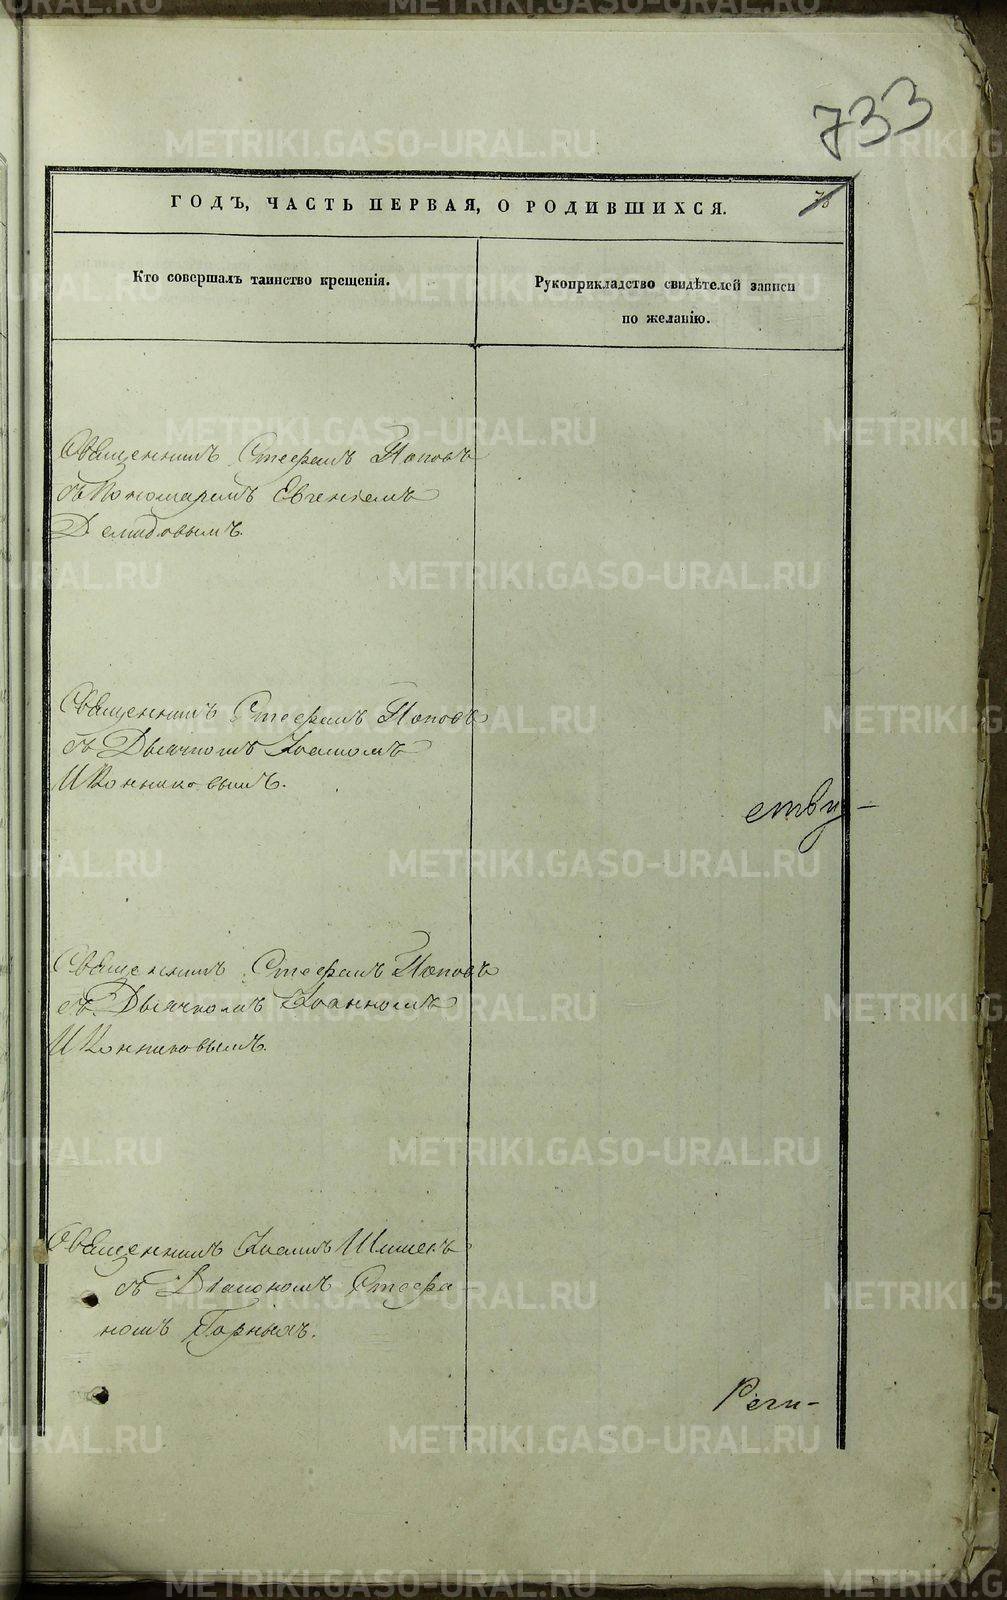 733
ГОДЪ, ЧАСТЬ ПЕРВАЯ, О РОДИВШИХСЯ.
Кто совершалъ таинство крещенія.
Рукоприкладство свидѣтелей записи
по желанію.
Священникъ Стефанъ Поповъ
съ Пономаремъ Евгеніемъ
Демидовымъ.
Священникъ Стефанъ Поповъ
съ Дьячкомъ Іоанномъ
Иконниковымъ.
ству-
Священникъ Стефанъ Поповъ
съ Дьячкомъ Іоанномъ
Иконниковымъ.
Священникъ Іоаннъ
съ Діакономъ Стефа-
номъ Горныхъ.
Реги-
METRIKI.GASO-URAL.RU